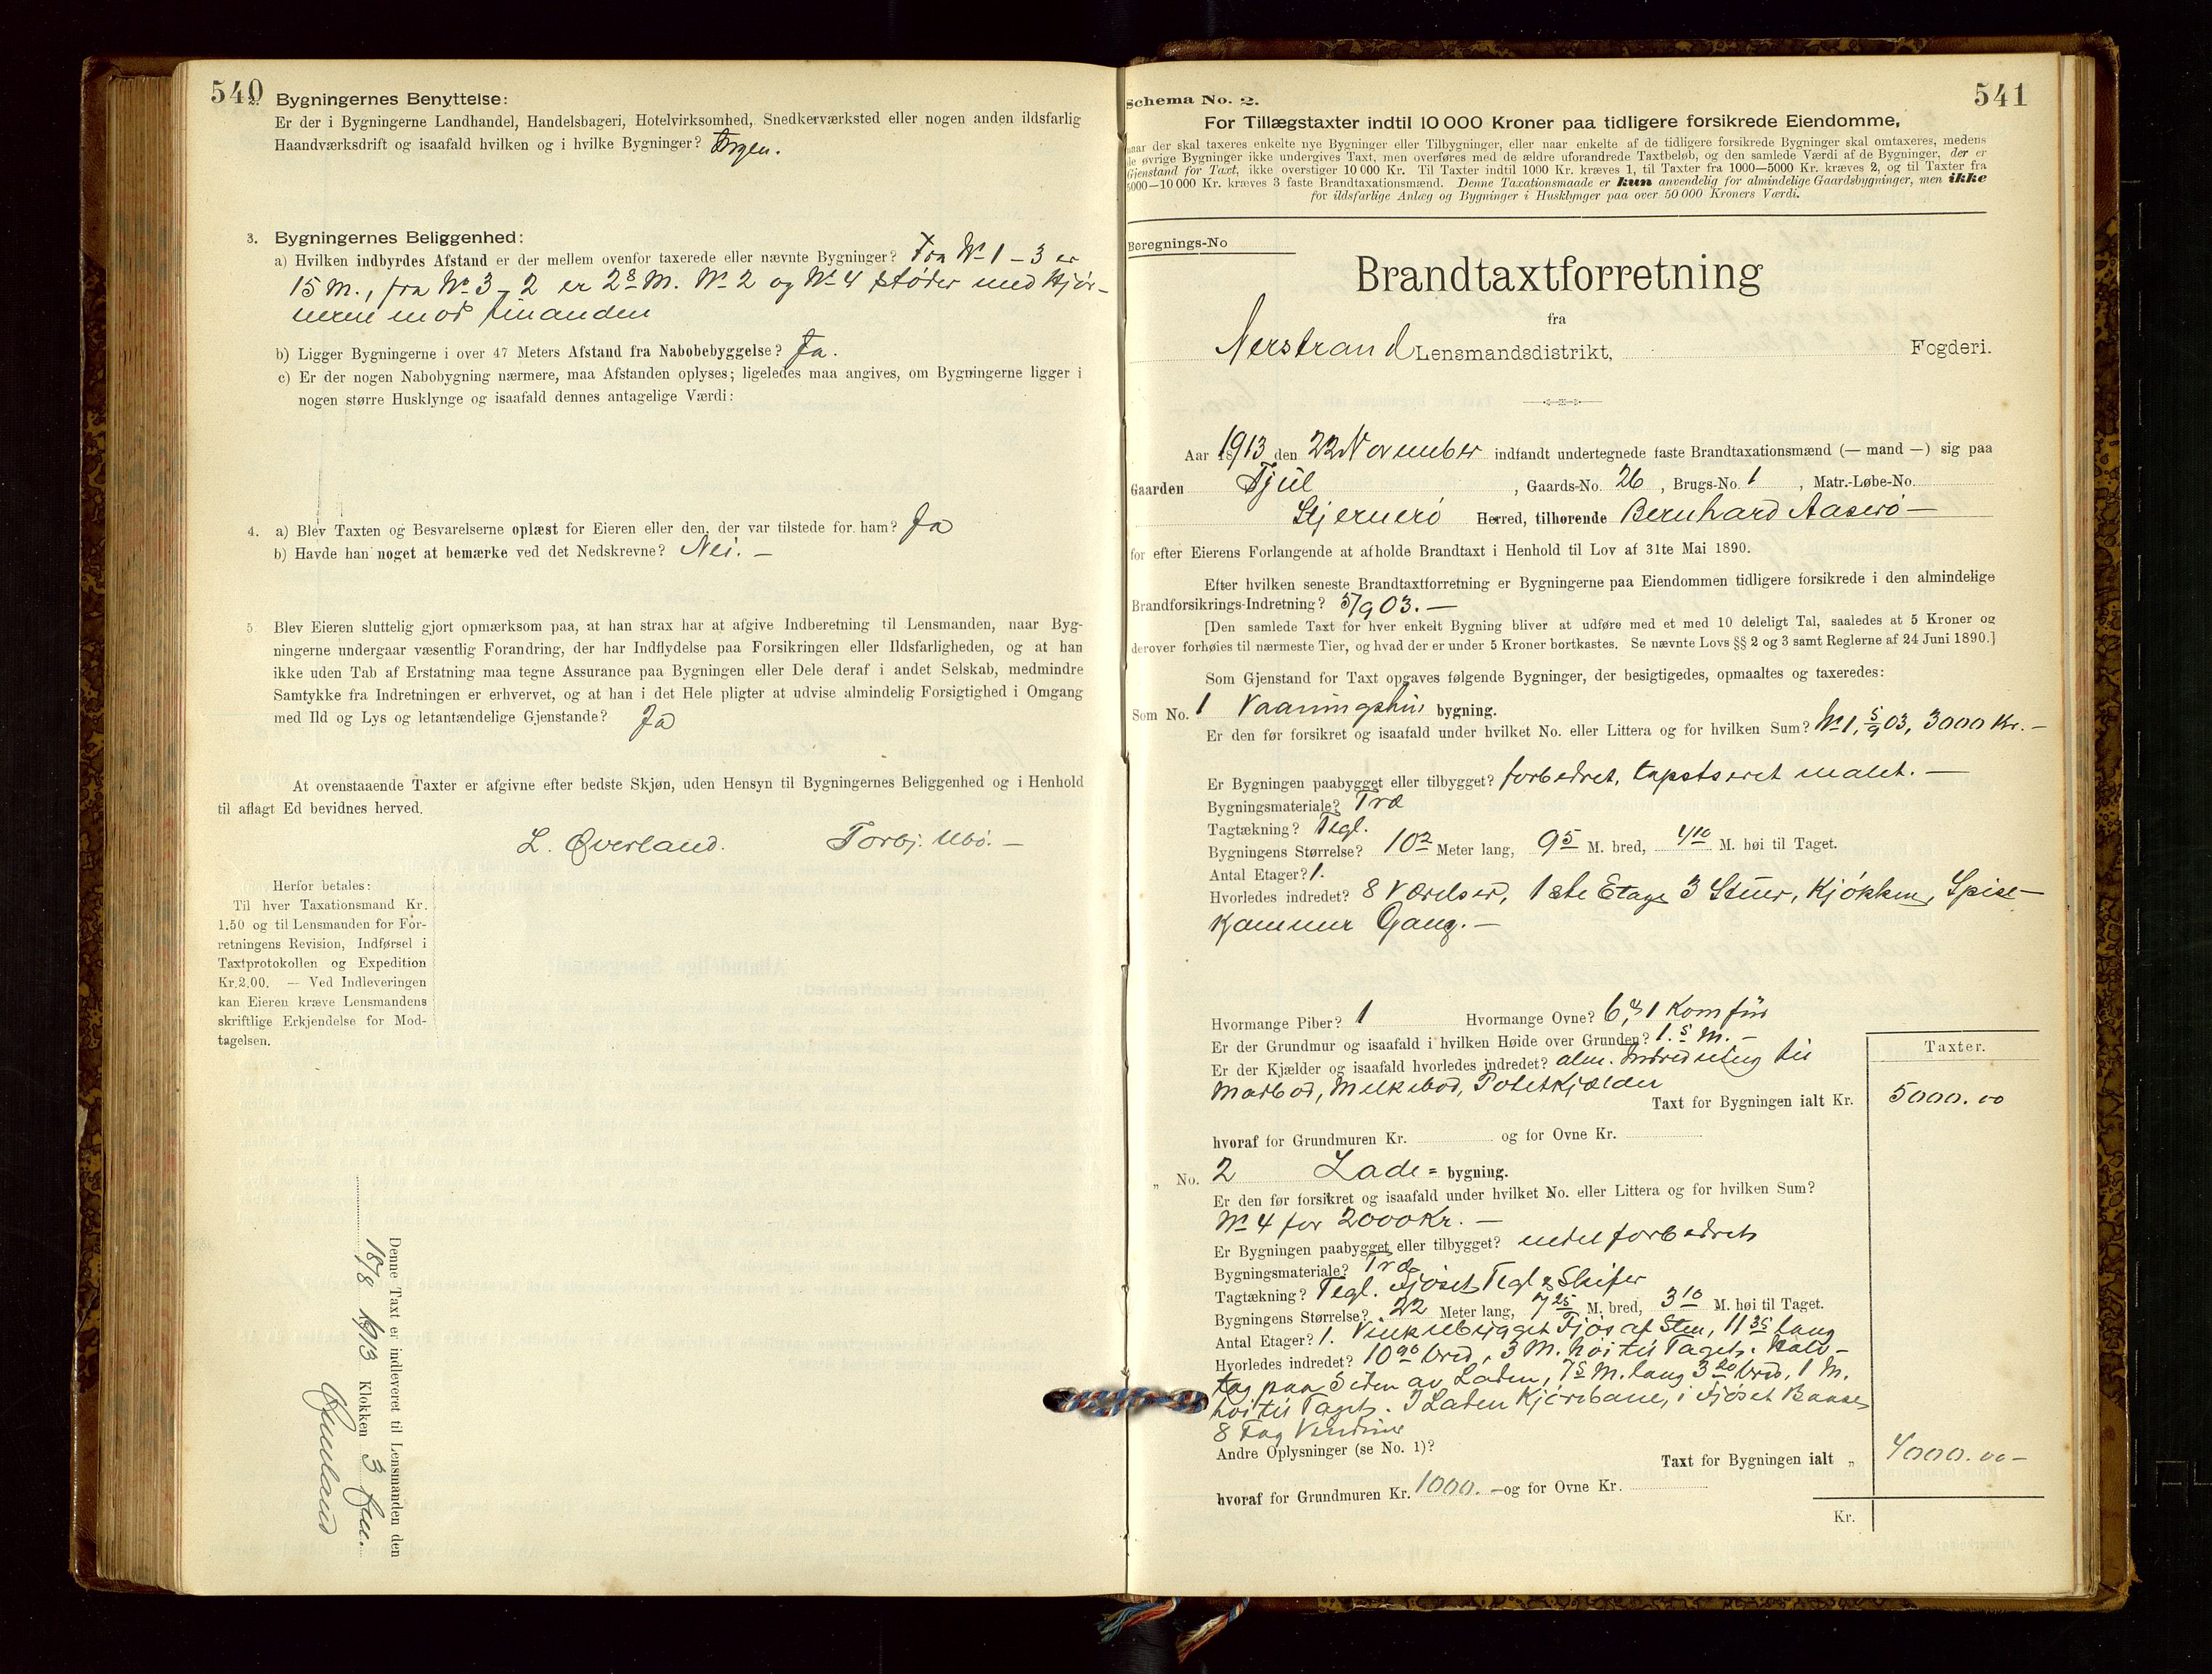 540
2. Bygningernes Benyttelse:
Er der i Bygningerne Landhandel, Handelsbageri, Hotelvirksomhed, Snedkerværksted eller nogen anden ildsfarlig
Haandværksdrift og isaafald hvilken og i hvilke Bygninger? Ingen.
3. Bygningernes Beliggenhed:
a) Hvilken indbyrdes Afstand er der mellem ovenfor taxerede eller nævnte Bygninger? Fra No 1 – 3 er
15 M., fra No 3 – 2 er 2.8 M. No 2 og No 4 støder med Hjør-
nerne mod hinanden
b) Ligger Bygningerne i over 47 Meters Afstand fra Nabobebyggelse? Ja.
c) Er der nogen Nabobygning nærmere, maa Afstanden oplyses; ligeledes maa angives, om Bygningerne ligger i
nogen større Husklynge og isaafald dennes antagelige Værdi:
4. a) Blev Taxten og Besvarelserne oplæst for Eieren eller den, der var tilstede for ham? Ja
b) Havde han noget at bemærke ved det Nedskrevne? Nei. –
5. Blev Eieren sluttelig gjort opmærksom paa, at han strax har at afgive Indberetning til Lensmanden, naar Byg-
ningerne undergaar væsentlig Forandring, der har Indflydelse paa Forsikringen eller Ildsfarligheden, og at han
ikke uden Tab af Erstatning maa tegne Assurance paa Bygningen eller Dele deraf i andet Selskab, medmindre
Samtykke fra Indretningen er erhvervet, og at han i det Hele pligter at udvise almindelig Forsigtighed i Omgang
med Ild og Lys og letantændelige Gjenstande? Ja
At ovenstaaende Taxter er afgivne efter bedste Skjøn, uden Hensyn til Bygningernes Beliggenhed og i Henhold
til aflagt Ed bevidnes herved.
L. Øverland. Torbj. Ubø. –
Herfor betales:
Til hver Taxationsmand Kr.
1.50 og til Lensmanden for For-
retningens Revision, Indførsel i
Taxtprotokollen og Expedition
Kr.2.00. — Ved Indleveringen
kan Eieren kræve Lensmandens
skriftlige Erkjendelse for Mod-
tagelsen.
Denne Taxt er indleveret til Lensmanden den
18/8 1913 Klokken 3
541
Schema No. 2.
For Tillægstaxter indtil 10 000 Kroner paa tidligere forsikrede Eiendomme,
naar der skal taxeres enkelte nye Bygninger eller Tilbygninger, eller naar enkelte af de tidligere forsikrede Bygninger skal omtaxeres, medens
de øvrige Bygninger ikke undergives Taxt, men overføres med de ældre uforandrede Taxtbeløb, og den samlede Værdi af de Bygninger, der er
Gjenstand for Taxt, ikke overstiger 10 000 Kr. Til Taxter indtil 1000 Kr. kræves 1, til Taxter fra 1000—5000 Kr. kræves 2, og til Taxter fra
5000—10 000 Kr. kræves 3 faste Brandtaxationsmænd. Denne Taxationsmaade er kun anvendelig for almindelige Gaardsbygninger, men ikke
for ildsfarlige Anlæg og Bygninger i Husklynger paa over 50 000 Kroners Værdi.
Beregnings-No
Brandtaxtforretning
fra
Nerstrand Lensmandsdistrikt, Fogderi.
Aar 1913 den 22 November indfandt undertegnede faste Brandtaxationsmænd (— mand —) sig paa
Gaarden Tjul, Gaards-No. 26, Brugs-No. 1, Matr.-Løbe-No.
Stjernerø Herred, tilhørende Bernhard Aaserø –
for efter Eierens Forlangende at afholde Brandtaxt i Henhold til Lov af 31te Mai 1890.
Efter hvilken seneste Brandtaxtforretning er Bygningerne paa Eiendommen tidligere forsikrede i den almindelige
Brandforsikrings-Indretning? 5/9 03. –
[Den samlede Taxt for hver enkelt Bygning bliver at udføre med et med 10 deleligt Tal, saaledes at 5 Kroner og
derover forhøies til nærmeste Tier, og hvad der er under 5 Kroner bortkastes. Se nævnte Lovs §§ 2 og 3 samt Reglerne af 24 Juni 1890.]
Som Gjenstand for Taxt opgaves følgende Bygninger, der besigtigedes, opmaaltes og taxeredes:
Som No. 1 Vaaningshus bygning.
Er den før forsikret og isaafald under hvilket No. eller Littera og for hvilken Sum? No 1, 5/9 03, 3000 Kr. –
Er Bygningen paabygget eller tilbygget? forbedret, tapetseret malet. –
Bygningsmateriale? Træ
Tagtækning? Tegl.
Bygningens Størrelse? 10.2 Meter lang, 9.5 M. bred, 4.10 M. høi til Taget.
Antal Etager? 1.
Hvorledes indredet? 8 Værelser, 1ste Etage 3 Stuer, Kjøkken, Spise-
kammer Gang. –
Hvormange Piber? 1 Hvormange Ovne? 6, & 1 Komfur
Er der Grundmur og isaafald i hvilken Høide over Grunden? 1.5 M. –
Er der Kjælder og isaafald hvorledes indredet? alm. Indredning til
Matbod, Melkebod, Potetkjælder
Taxter.
Taxt for Bygningen ialt Kr. 5000.00
hvoraf for Grundmuren Kr. og for Ovne Kr.
„ No. 2 Lade = bygning.
Er den før forsikret og isaafald under hvilket No. eller Littera og for hvilken Sum?
No 4 for 2000 Kr. –
Er Bygningen paabygget eller tilbygget? endel forbedret
Bygningsmateriale? Træ
Tagtækning? Tegl. Fjøset Tegl & Skifer
Bygningens Størrelse? 22 Meter lang, 7.25 M. bred, 3.10 M. høi til Taget.
Antal Etager? 1. Vinkelbygget Fjøs af Sten, 11.35 lang
Hvorledes indredet? 10.90 bred, 3 M. høi til Taget. Halv-
tag paa Siden av Laden, 7.5 M. lang 3.20 bred, 1 M.
høi til Taget. I Laden Kjørebane, i Fjøset Baase
8 Fag
Andre Oplysninger (se No. 1)?
Taxt for Bygningen ialt „ 4000.00 –
hvoraf for Grundmuren Kr. 1000. – og for Ovne Kr.
Kr.